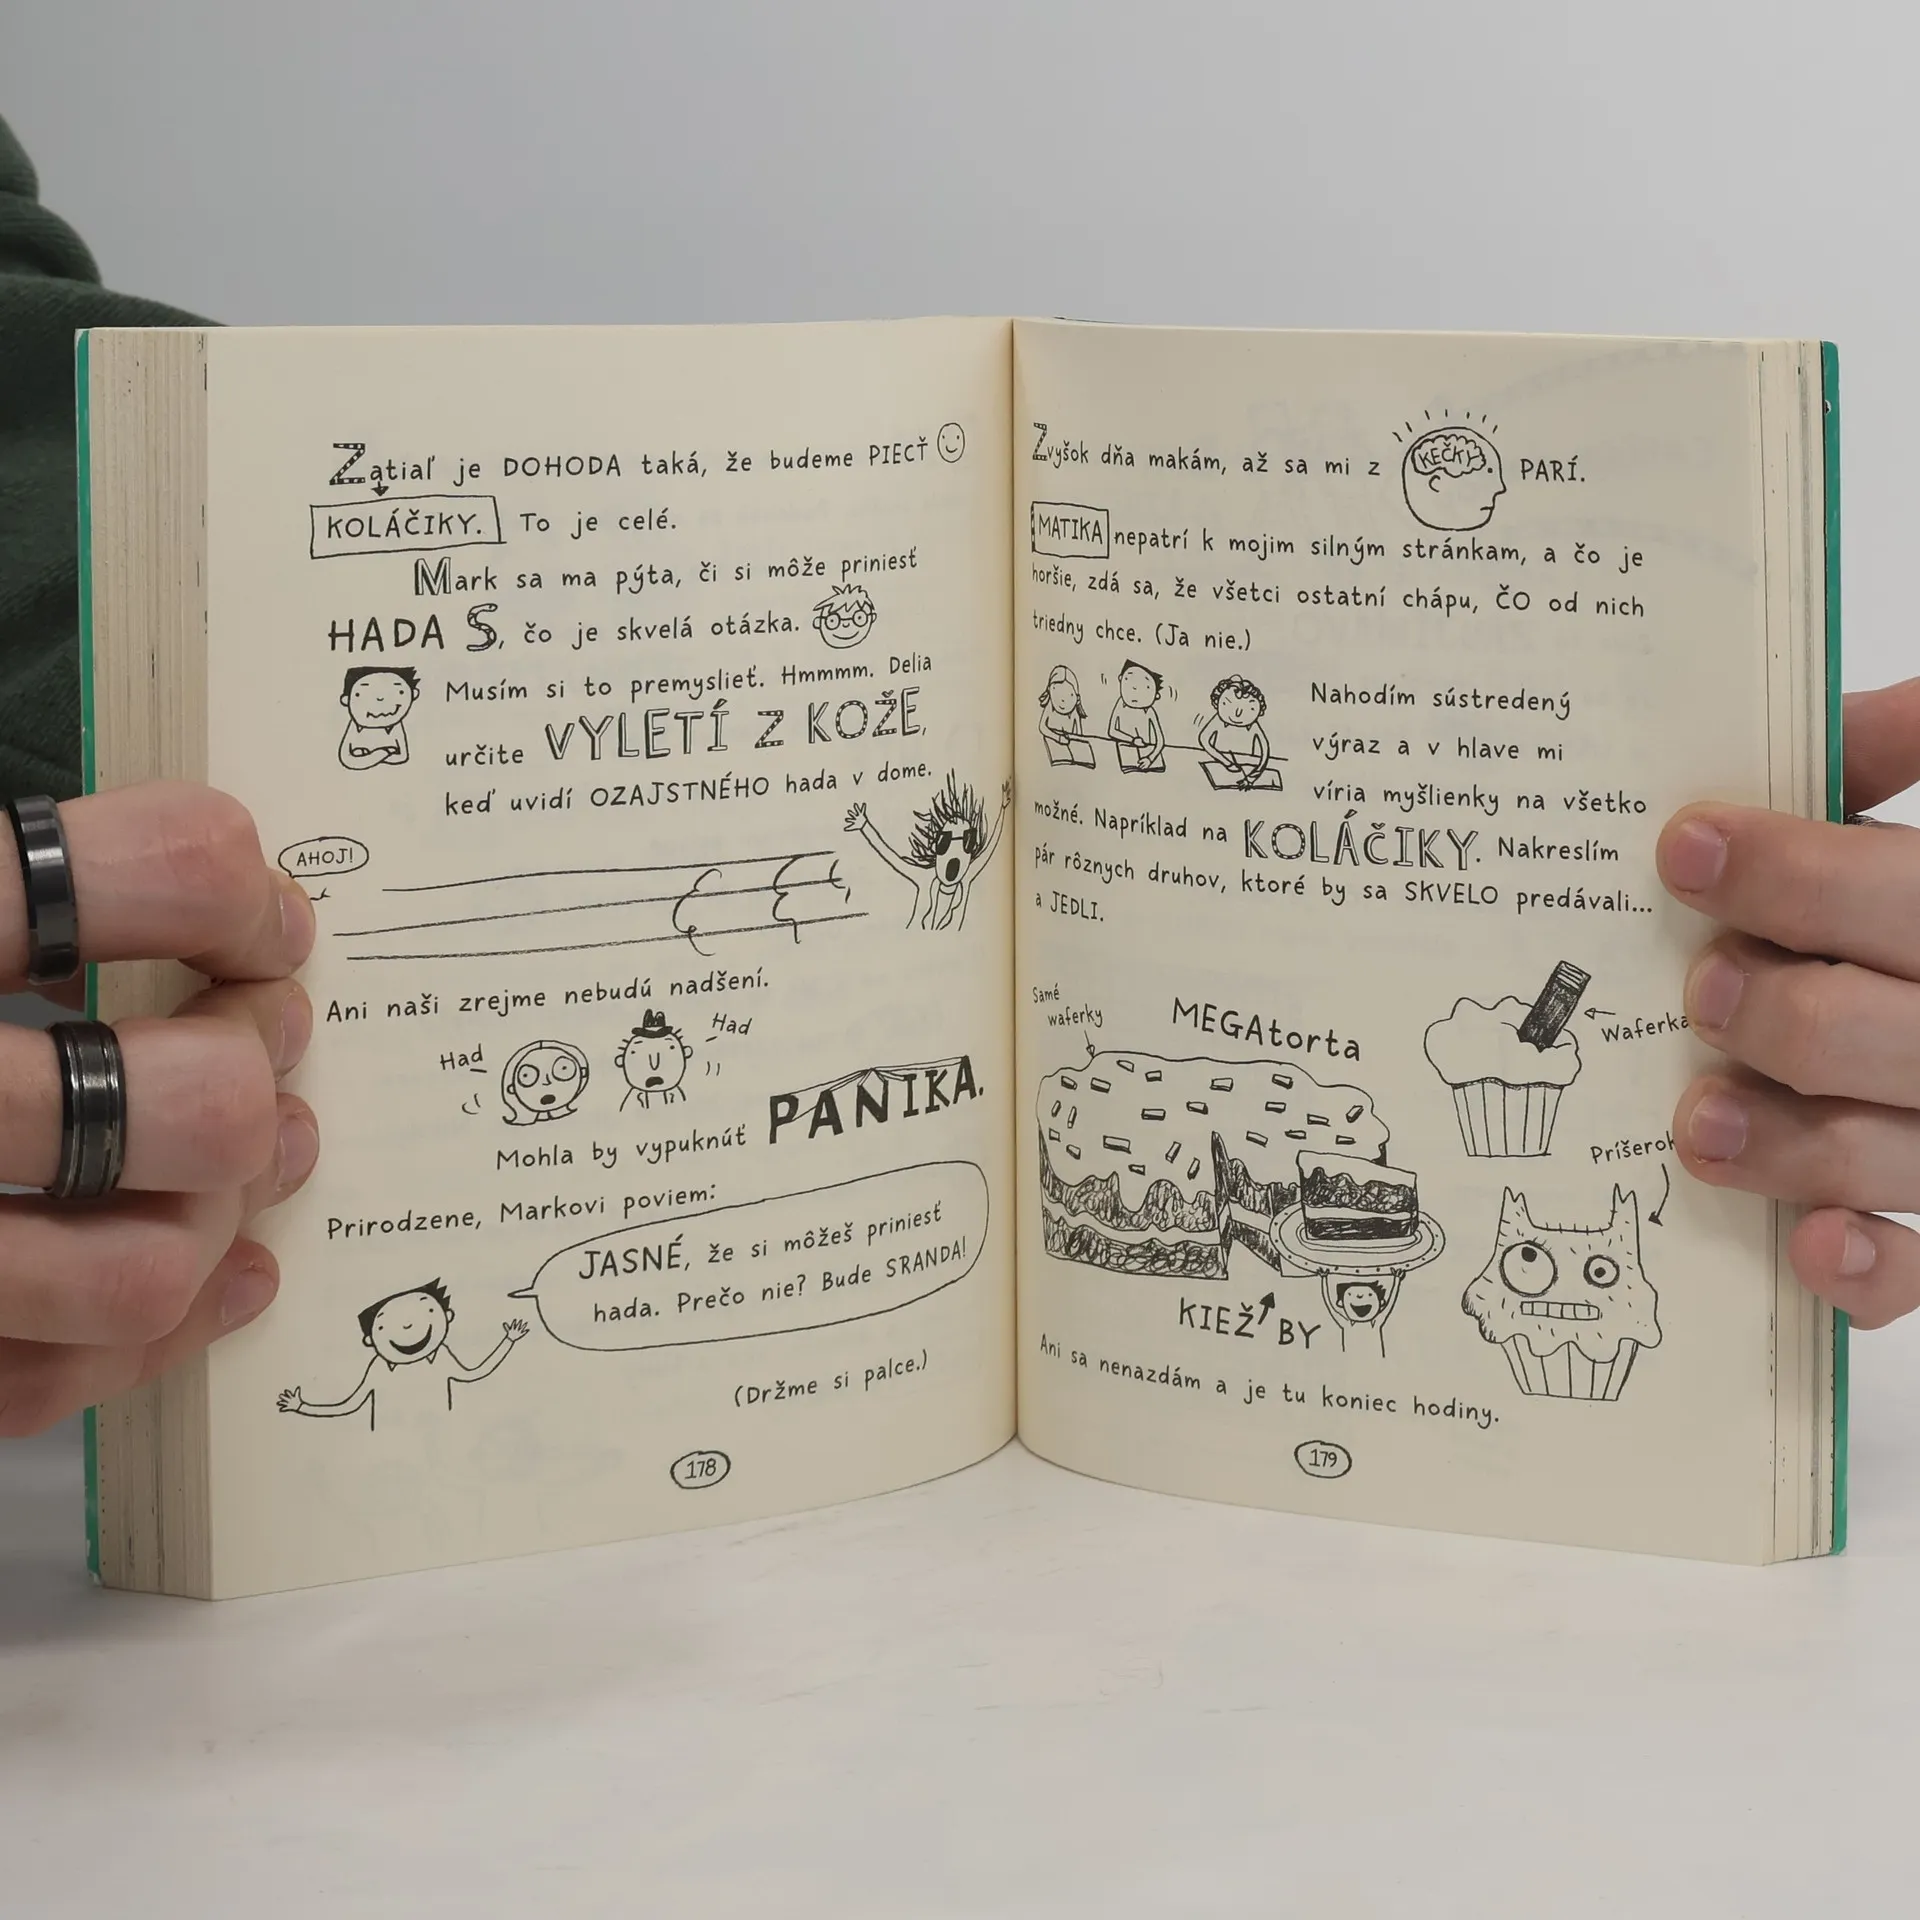 Zatiaľ je DOHODA taká, že budeme PIECŤ
KOLÁČIKY. To je celé.
Mark sa ma pýta, či si môže priniesť
HADA S, čo je skvelá otázka.
Musím si to premyslieť. Hmmmm. Delia
určite VYLETÍ Z KOŽE,
keď uvidí OZAJSTNÉHO hada v dome.
AHOJ!
Ani naši zrejme nebudú nadšení.
Had
Had
Mohla by vypuknúť PANIKA.
Prirodzene, Markovi poviem:
JASNÉ, že si môžeš priniesť
hada. Prečo nie? Bude SRANDA!
(Držme si palce.)
178
Zvyšok dňa makám, až sa mi z KEČKY PARÍ.
MATIKA nepatrí k mojim silným stránkam, a čo je
horšie, zdá sa, že všetci ostatní chápu, ČO od nich
triedny chce. (Ja nie.)
Nahodím sústredený
výraz a v hlave mi
víria myšlienky na všetko
možné. Napríklad na KOLÁČIKY. Nakreslím
pár rôznych druhov, ktoré by sa SKVELO predávali...
a JEDLI.
Samé
waferky
MEGAtorta
Waferka
Príšerok
KIEŽ BY
Ani sa nenazdám a je tu koniec hodiny.
179